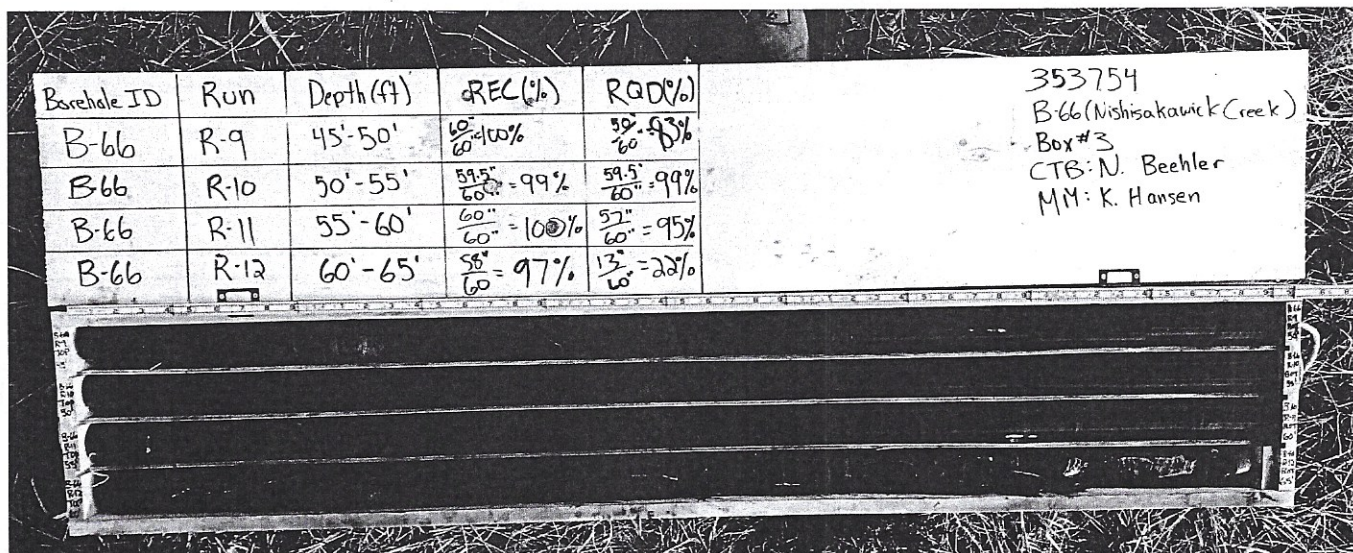 Borehole ID Run Depth (ft) REC (%) RQD (%)
B-66 R-9 45'-50' 60"/60" = 100% 50/60 = 83%
B-66 R-10 50'-55' 59.5"/60" = 99% 59.5"/60" = 99%
B-66 R-11 55'-60' 60"/60" = 100% 57"/60" = 95%
B-66 R-12 60'-65' 58"/60 = 97% 13"/60" = 22%
353754
B-66 (Nishisakawick Creek)
Box #3
CTB: N. Beehler
MM: K. Hansen